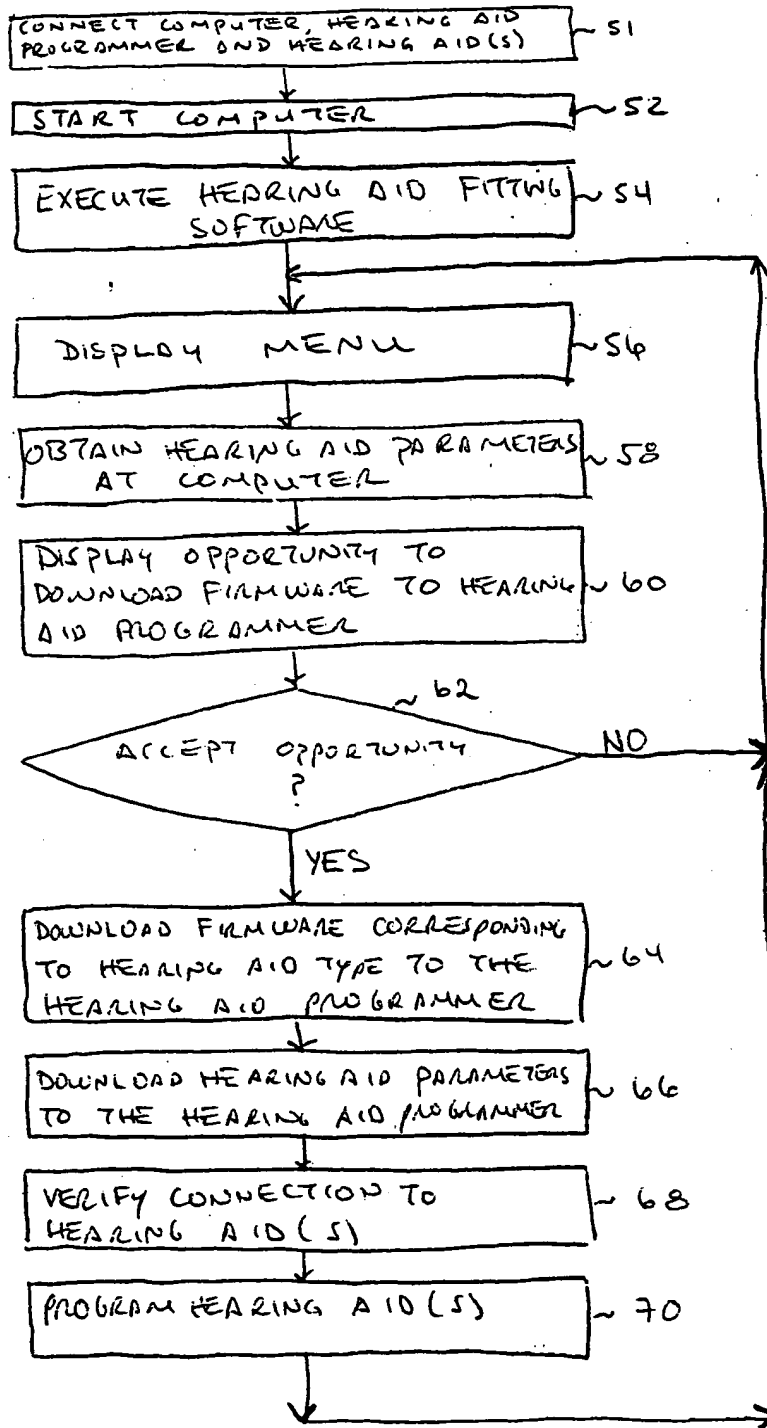 CONNECT COMPUTER, HEARING AID
PROGRAMMER AND HEARING AID(S)
51
START COMPUTER
52
EXECUTE HEARING AID FITTING
SOFTWARE
54
DISPLAY MENU
56
OBTAIN HEARING AID PARAMETERS
AT COMPUTER
58
DISPLAY OPPORTUNITY TO
DOWNLOAD FIRMWARE TO HEARING
AID PROGRAMMER
60
62
ACCEPT OPPORTUNITY
?
NO
YES
DOWNLOAD FIRMWARE CORRESPONDING
TO HEARING AID TYPE TO THE
HEARING AID PROGRAMMER
64
DOWNLOAD HEARING AID PARAMETERS
TO THE HEARING AID PROGRAMMER
66
VERIFY CONNECTION TO
HEARING AID(S)
68
PROGRAM HEARING AID(S)
70